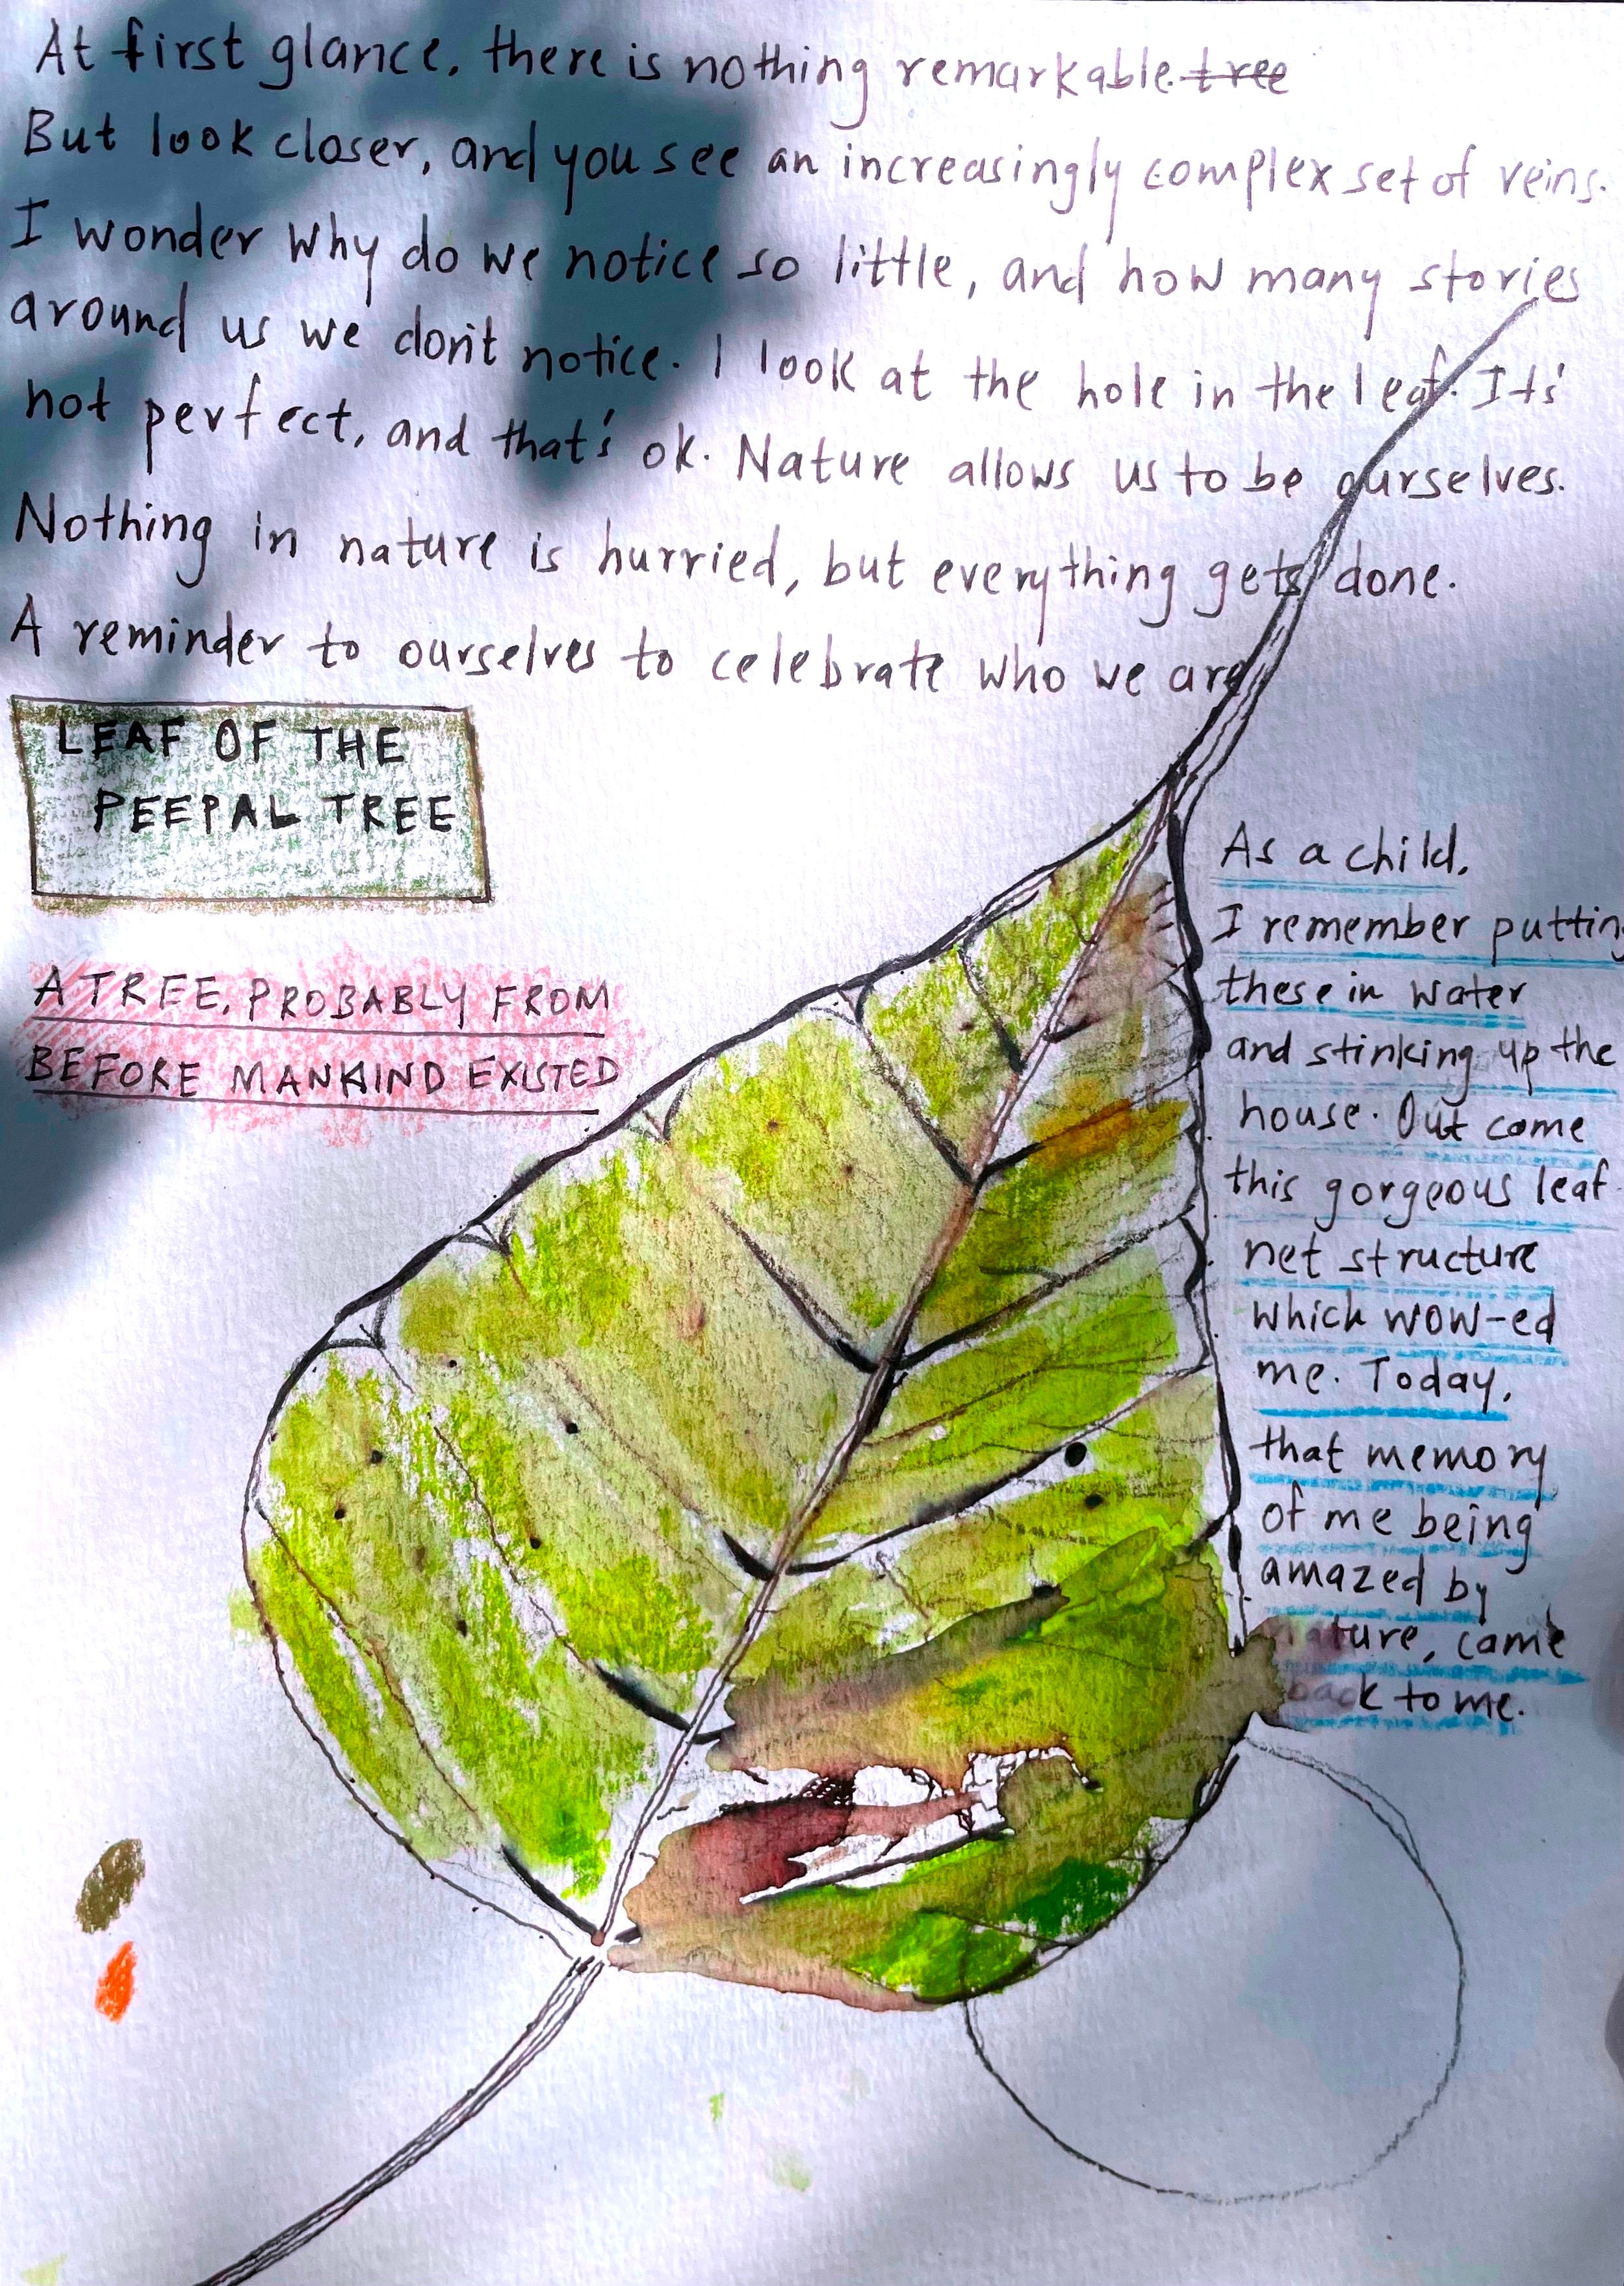 At first glance, there is nothing remarkable. tree
But look closer, and you see an increasingly complex set of veins.
I wonder why do we notice so little, and how many stories
around us we don't notice. I look at the hole in the leaf. Its'
not perfect, and that's ok. Nature allows us to be ourselves.
Nothing in nature is hurried, but everything gets done.
A reminder to ourselves to celebrate who we are
LEAF OF THE
PEEPAL TREE
A TREE, PROBABLY FROM
BEFORE MANKIND EXISTED
As a child,
I remember putting
these in water
and stinking up the
house. Out came
this gorgeous leaf
net structure
which wow-ed
me. Today,
that memory
of me being
amazed by
nature, came
back to me.